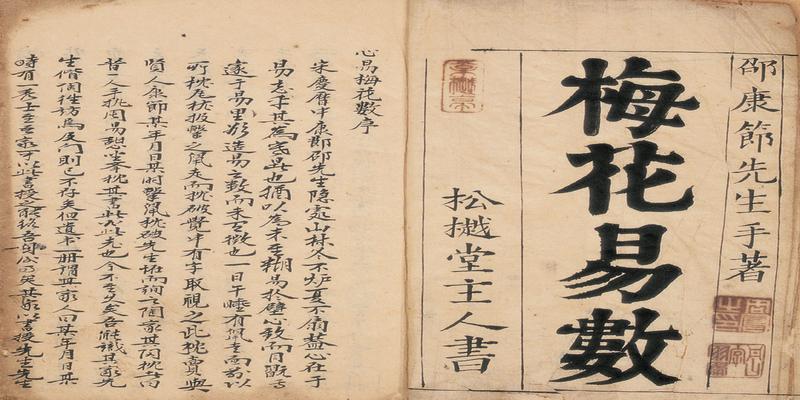 邵康節先生手著
梅花易數
松樾堂主人書
心易梅花數序
宋慶曆中康節邵先生隱處山林冬不炉夏不扇蓋心在于
易忘乎其為寒暑也猶以為未至糊易於壁心致而目翫焉
邃于易里欲造易之數而未有徵也一日午睡有鼠走而前以
所枕瓦枕投擊之鼠走而枕破覺中有字取視之此枕賣與
賢人康節某年月日某時擊鼠枕破先生怪而詢之陶家其陶枕者曰
昔一人手执周易憩坐举枕其書此必此老也今不至久矣吾能識其家先
生偕陶往訪焉及門則已不存矣但遺書一册謂其家人曰某年月日某
時有一秀士至吾家可以此書授之能終吾矣其家以書授先生先生